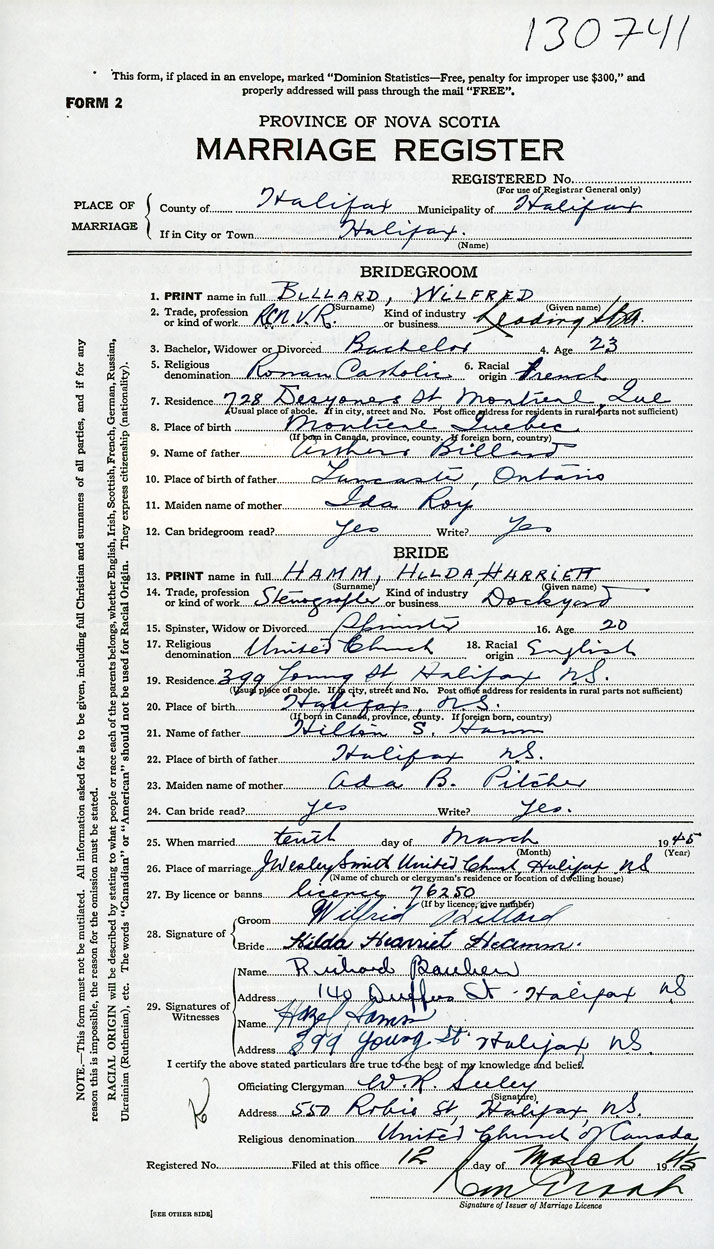 130741
This form, if placed in an envelope, marked "Dominion Statistics—Free, penalty for improper use $300," and
properly addressed will pass through the mail "FREE".
FORM 2
PROVINCE OF NOVA SCOTIA
MARRIAGE REGISTER
REGISTERED No.
(For use of Registrar General only)
PLACE OF MARRIAGE
County of Halifax Municipality of Halifax
If in City or Town Halifax.
(Name)
BRIDEGROOM
1. PRINT name in full BILLARD, WILFRED
(Surname) (Given name)
2. Trade, profession or kind of work R.C.N.V.R. Kind of industry or business Leading
3. Bachelor, Widower or Divorced Bachelor 4. Age 23
5. Religious denomination Roman Catholic 6. Racial origin French
7. Residence 728 St Montreal, Que
(Usual place of abode. If in city, street and No. Post office address for residents in rural parts not sufficient)
8. Place of birth Montreal Quebec
(If born in Canada, province, county. If foreign born, country)
9. Name of father Billard
10. Place of birth of father Lancaster, Ontario
11. Maiden name of mother Ida Roy
12. Can bridegroom read? Yes Write? Yes
BRIDE
13. PRINT name in full HAMM, HILDA HARRIETT
(Surname) (Given name)
14. Trade, profession or kind of work Stenographer Kind of industry or business Dockyard
15. Spinster, Widow or Divorced Spinster 16. Age 20
17. Religious denomination United Church 18. Racial origin English
19. Residence 399 Young St Halifax N.S.
(Usual place of abode. If in city, street and No. Post office address for residents in rural parts not sufficient)
20. Place of birth Halifax, N.S.
(If born in Canada, province, county. If foreign born, country)
21. Name of father Hilton S. Hamm
22. Place of birth of father Halifax N.S.
23. Maiden name of mother Ada B. Pilcher
24. Can bride read? yes Write? yes.
25. When married tenth day of March 1945
(Month) (Year)
26. Place of marriage J Wesley Smith United Church, Halifax NS
(Name of church or clergyman's residence or location of dwelling house)
27. By licence or banns licence 76250
(If by licence, give number)
28. Signature of
Groom Wilfrid Billard
Bride Hilda Harriet Hamm.
29. Signatures of Witnesses
Name Richard
Address 140 Duffus St. Halifax NS
Name Hazel Hamm
Address 399 Young St. Halifax NS.
I certify the above stated particulars are true to the best of my knowledge and belief.
Officiating Clergyman W.R. Seeley
(Signature)
Address 550 Robie St, Halifax, N.S.
Religious denomination United Church of Canada
Registered No. Filed at this office 12 day of March 1945
Signature of Issuer of Marriage Licence
[SEE OTHER SIDE]
NOTE.—This form must not be mutilated. All information asked for is to be given, including full Christian and surnames of all parties, and if for any
reason this is impossible, the reason for the omission must be stated.
RACIAL ORIGIN will be described by stating to what people or race each of the parents belongs, whether English, Irish, Scottish, French, German, Russian,
Ukrainian (Ruthenian), etc. The words "Canadian" or "American" should not be used for Racial Origin. They express citizenship (nationality).